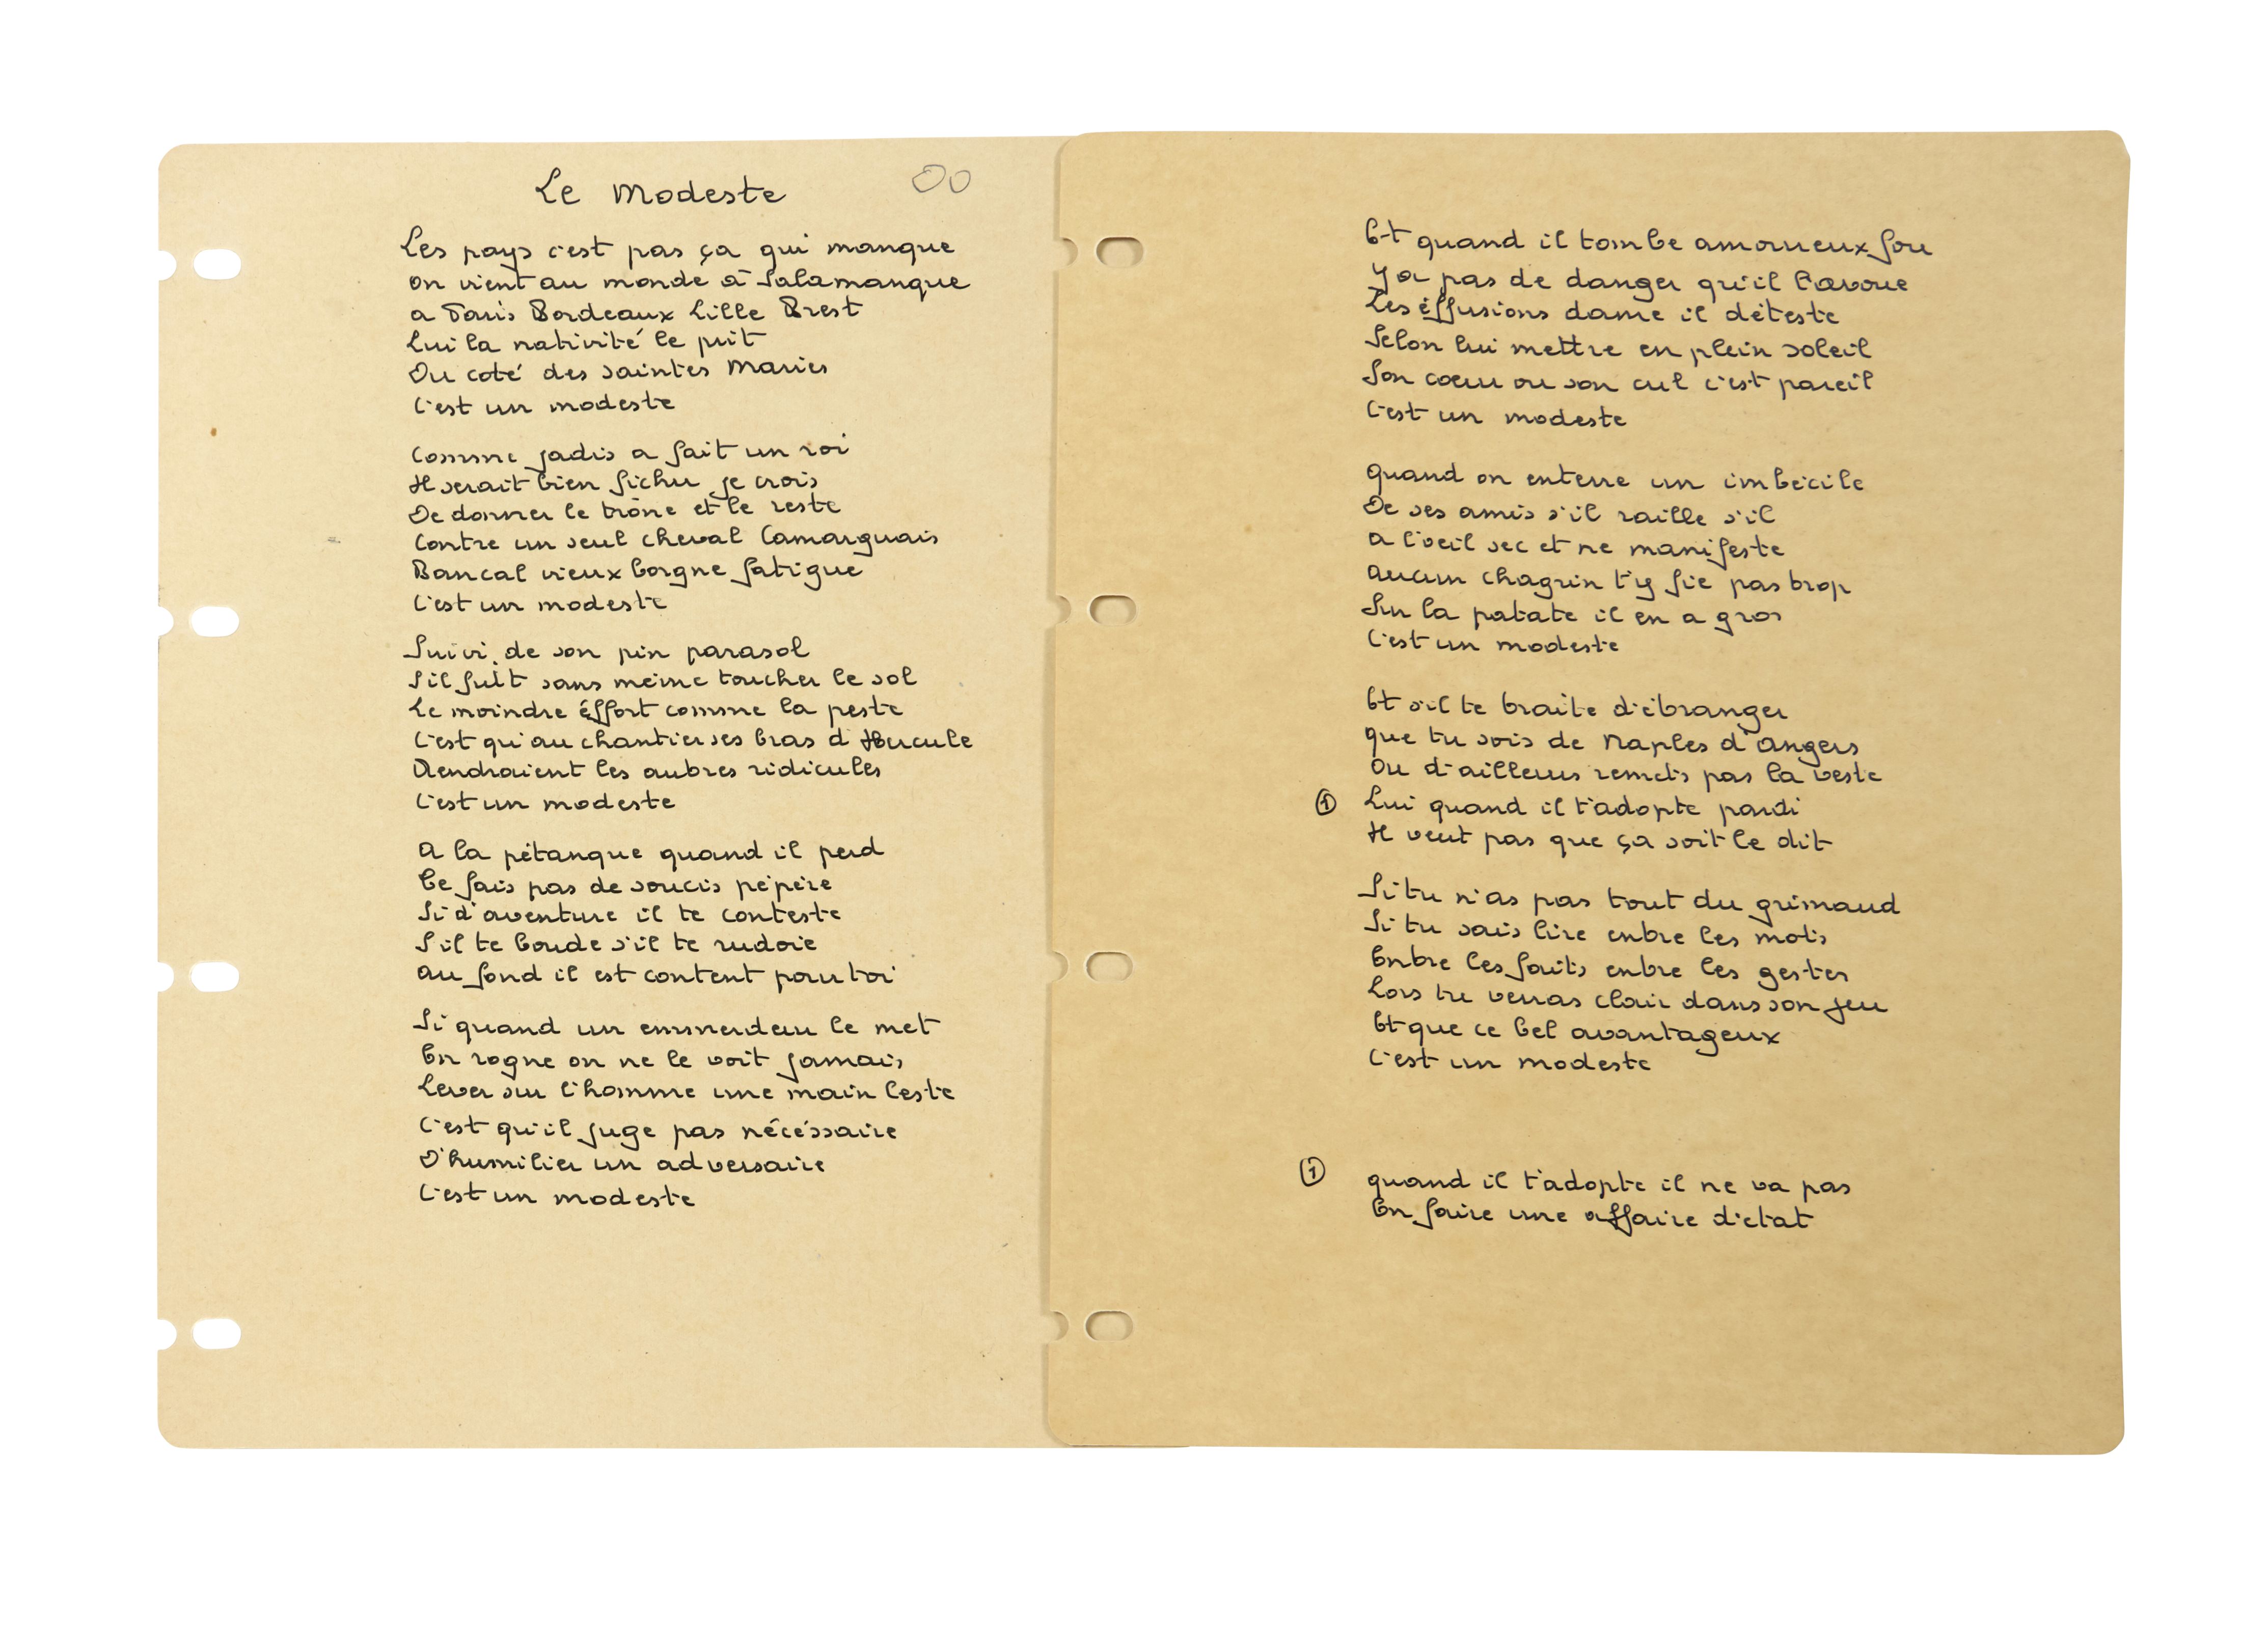 Le Modeste
00
Les pays c'est pas ça qui manque
on vient au monde à Salamanque
a Paris Bordeaux Lille Brest
Lui la nativité le prit
Du coté des saintes Maries
C'est un modeste
Comme jadis a fait un roi
Il serait bien fichu je crois
De donner le trône et le reste
Contre un seul cheval Camarguais
Bancal vieux borgne fatigue
C'est un modeste
Suivi de son pin parasol
S'il fuit sans même toucher le sol
Le moindre éffort comme la peste
C'est qu'au chantier ses bras d'Hercule
Rendraient les autres ridicules
C'est un modeste
A la pétanque quand il perd
Te fais pas de soucis pépère
Si d'aventure il te conteste
S'il te boude s'il te rudoie
Au fond il est content pour toi
Si quand un emmerdeur le met
En rogne on ne le voit jamais
Lever sur l'homme une main leste
C'est qu'il juge pas nécéssaire
D'humilier un adversaire
C'est un modeste
Et quand il tombe amoureux fou
Y a pas de danger qu'il l'avoue
Les éffusions dame il déteste
Selon lui mettre en plein soleil
Son coeur ou son cul c'est pareil
C'est un modeste
Quand on enterre un imbécile
De ses amis s'il raille s'il
A l'oeil sec et ne manifeste
Aucun chagrin t'y fie pas trop
Sur la patate il en a gros
C'est un modeste
Et s'il te traite d'étranger
Que tu sois de Naples d'Angers
Ou d'ailleurs remets pas la veste
① Lui quand il t'adopte pardi
Il veut pas que ça soit le dit
Si tu n'as pas tout du grimaud
Si tu sais lire entre les mots
Entre les faits entre les gestes
Lors tu verras clair dans son jeu
Et que ce bel avantageux
C'est un modeste
① quand il t'adopte il ne va pas
En faire une affaire d'etat